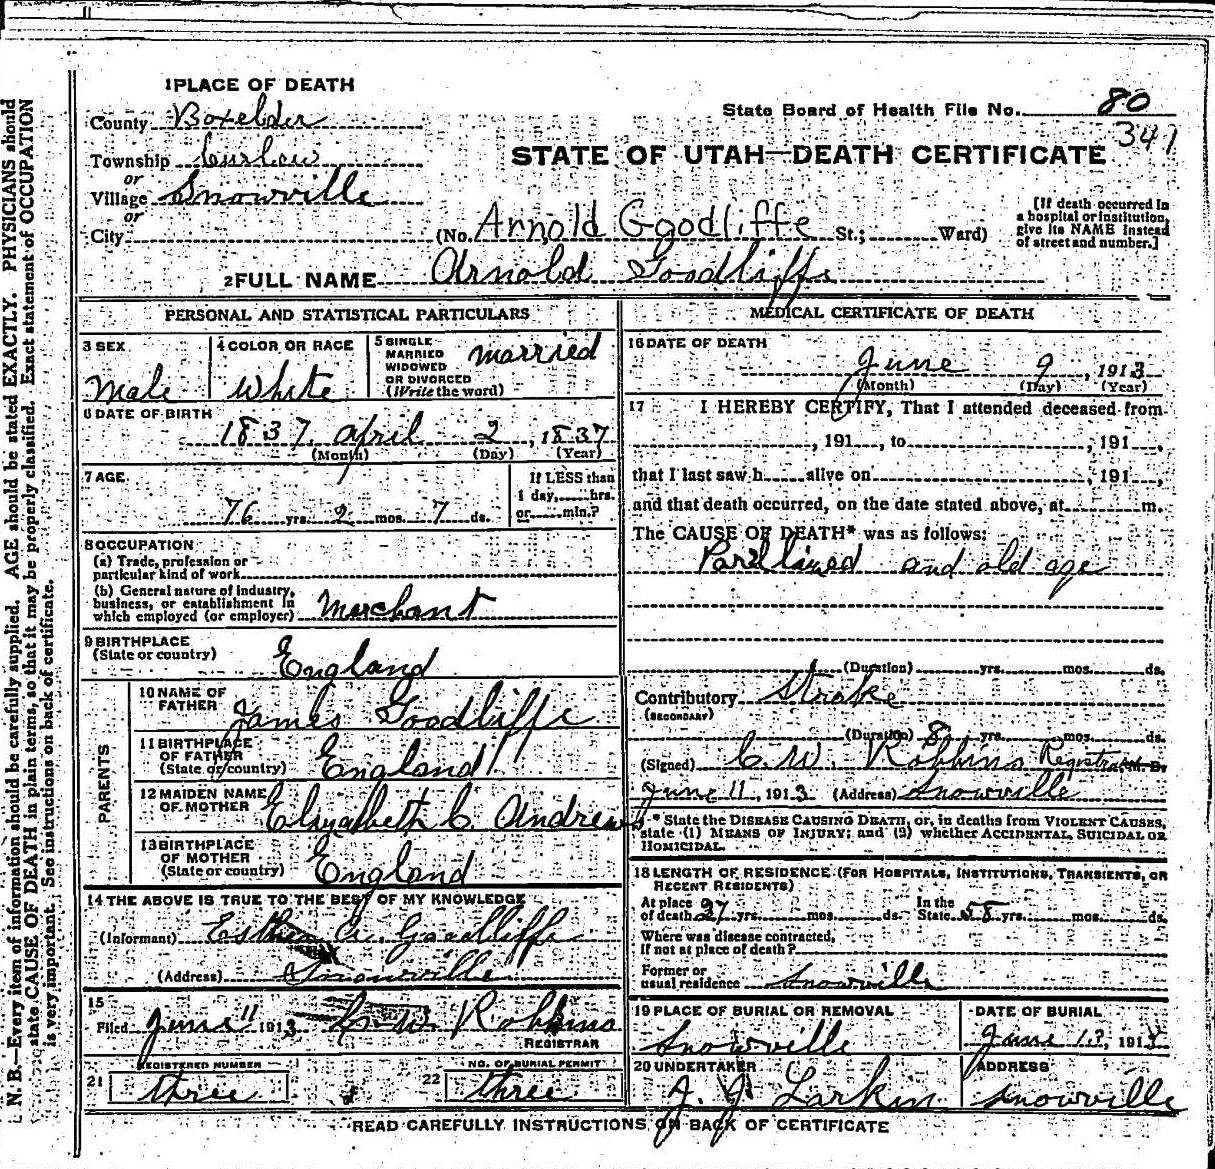 1 PLACE OF DEATH
County Boxelder
State Board of Health File No. 80
341
Township Curlew
or
STATE OF UTAH—DEATH CERTIFICATE
Village Snowville
or
City (No. Arnold Goodliffe St.; Ward)
[If death occurred in
a hospital or institution,
give its NAME instead
of street and number.]
2 FULL NAME Arnold Goodliffe
PERSONAL AND STATISTICAL PARTICULARS
3 SEX
Male
4 COLOR OR RACE
White
5 SINGLE
MARRIED
WIDOWED
OR DIVORCED
(Write the word)
married
6 DATE OF BIRTH
1837 April 2, 1837
(Month) (Day) (Year)
7 AGE
76 yrs. 2 mos. 7 ds.
If LESS than
1 day, hrs.
or min.?
8 OCCUPATION
(a) Trade, profession or
particular kind of work
(b) General nature of industry,
business, or establishment in
which employed (or employer) Merchant
9 BIRTHPLACE
(State or country) England
PARENTS
10 NAME OF
FATHER James Goodliffe
11 BIRTHPLACE
OF FATHER
(State or country) England
12 MAIDEN NAME
OF MOTHER Elizabeth C. Andrews
13 BIRTHPLACE
OF MOTHER
(State or country) England
14 THE ABOVE IS TRUE TO THE BEST OF MY KNOWLEDGE
(Informant) Esther A. Goodliffe
(Address) Snowville
15
Filed June 11 1913 C. W. Robbins
REGISTRAR
REGISTERED NUMBER
21 three
NO. OF BURIAL PERMIT
22 three
MEDICAL CERTIFICATE OF DEATH
16 DATE OF DEATH
June 9, 1913
(Month) (Day) (Year)
17 I HEREBY CERTIFY, That I attended deceased from
, 191 , to , 191 ,
that I last saw h alive on , 191 ,
and that death occurred, on the date stated above, at m.
The CAUSE OF DEATH* was as follows:
and old age
(Duration) yrs. mos. ds.
Contributory Stroke
(SECONDARY)
(Duration) 8 yrs. mos. ds.
(Signed) C. W. Robbins Registrar M. D.
June 11, 1913 (Address) Snowville
* State the DISEASE CAUSING DEATH, or, in deaths from VIOLENT CAUSES,
state (1) MEANS OF INJURY; and (2) whether ACCIDENTAL, SUICIDAL OR
HOMICIDAL.
18 LENGTH OF RESIDENCE (FOR HOSPITALS, INSTITUTIONS, TRANSIENTS, OR
RECENT RESIDENTS)
At place
of death 27 yrs. mos. ds.
In the
State 58 yrs. mos. ds.
Where was disease contracted,
if not at place of death?
Former or
usual residence Snowville
19 PLACE OF BURIAL OR REMOVAL
Snowville
DATE OF BURIAL
June 13, 191
20 UNDERTAKER
J. J. Larkin
ADDRESS
Snowville
READ CAREFULLY INSTRUCTIONS ON BACK OF CERTIFICATE
N. B.—Every item of information should be carefully supplied. AGE should be stated EXACTLY. PHYSICIANS should
state CAUSE OF DEATH in plain terms, so that it may be properly classified. Exact statement of OCCUPATION
is very important. See instructions on back of certificate.